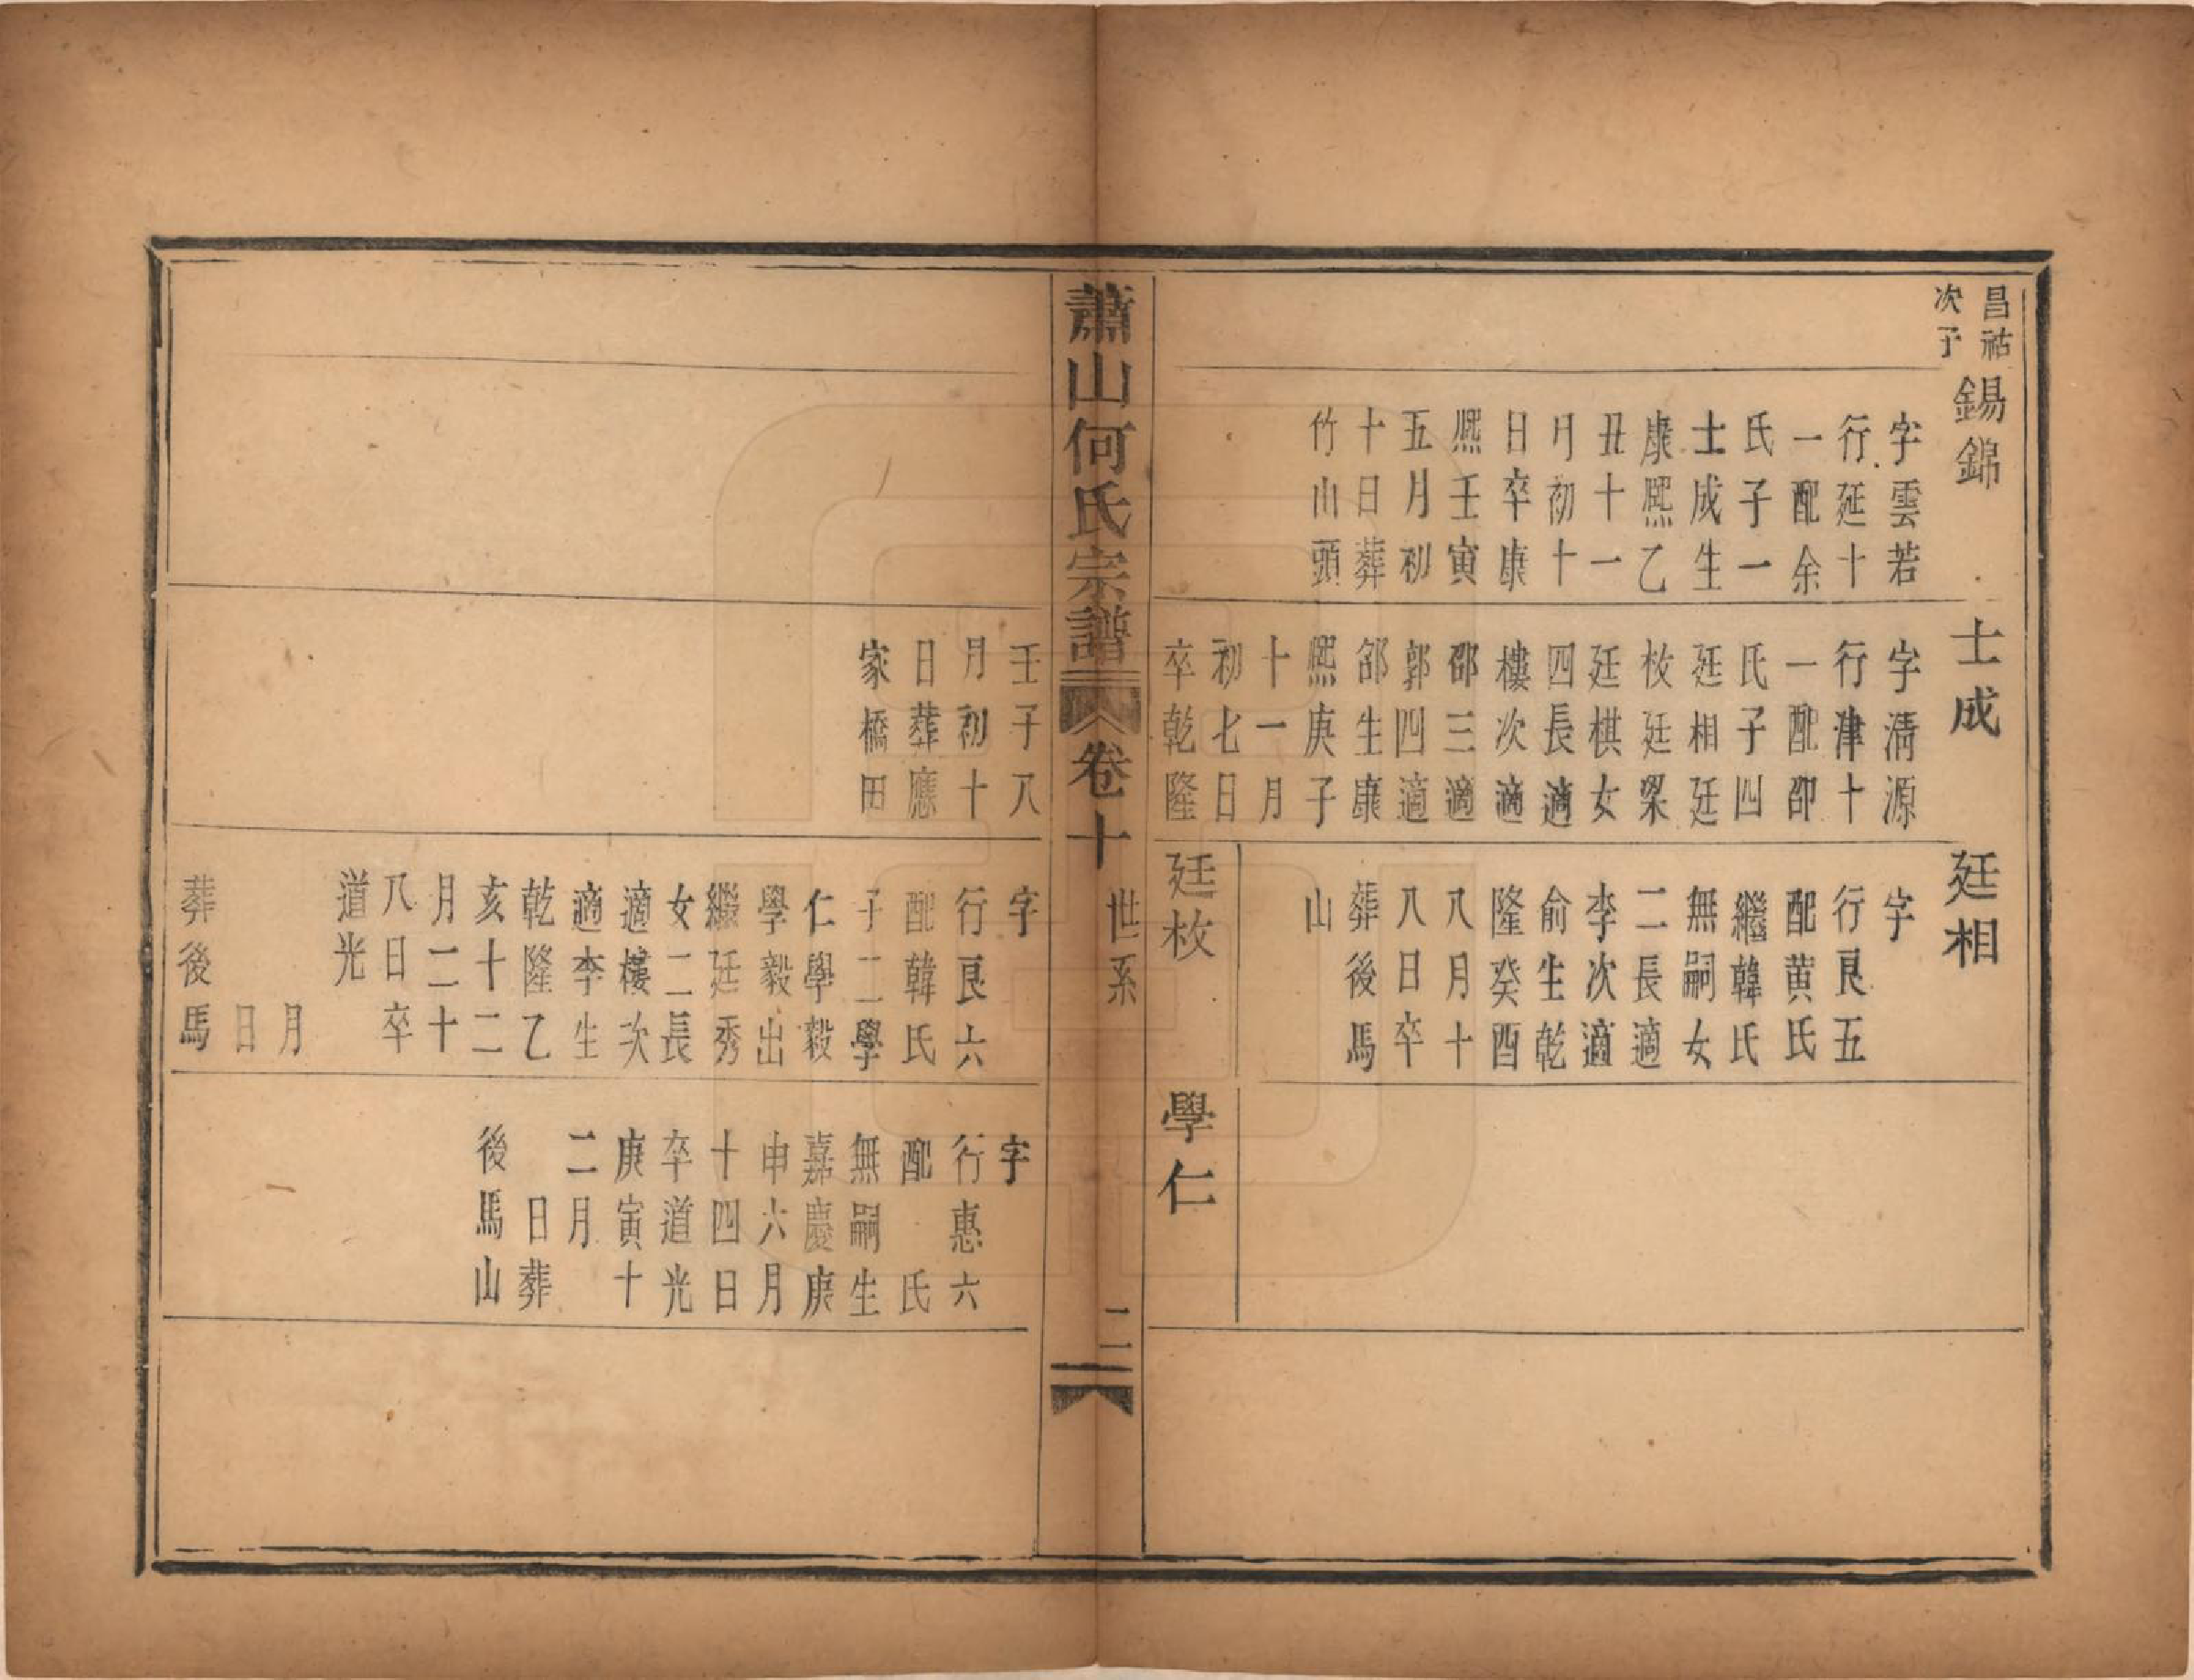 昌祜
次子
錫錦
字雲若
行延十
一配余
氏子一
士成生
康熙乙
丑十一
月初十
日卒康
熙壬寅
五月初
十日葬
竹山頭
士成
字清源
行津十
一配邵
氏子四
廷相廷
枚廷梁
廷棋女
四長適
樓次適
邵三適
郭四適
郤生康
熙庚子
十一月
初七日
卒乾隆
壬子八
月初十
日葬應
家橋田
廷相
字
行良五
配黄氏
繼韓氏
無嗣女
二長適
李次適
俞生乾
隆癸酉
八月十
八日卒
葬後馬
山
廷枚
字
行良六
配韓氏
子二學
仁學毅
學毅出
繼廷秀
女二長
適樓次
適李生
乾隆乙
亥十二
月二十
八日卒
道光
月
日
葬後馬
學仁
字
行惠六
配 氏
無嗣生
嘉慶庚
申六月
十四日
卒道光
庚寅十
二月
日葬
後馬山
蕭山何氏宗譜 卷十 世系 二